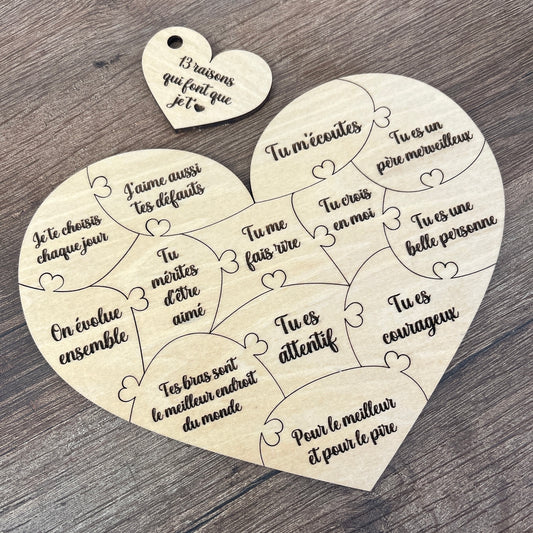 13 raisons
qui font que
je t'❤
Tu m'écoutes
Tu es un
père merveilleux
J'aime aussi
tes défauts
Tu crois
en moi
Tu es une
belle personne
Je te choisis
chaque jour
Tu me
fais rire
Tu
mérites
d'être
aimé
On évolue
ensemble
Tu es
attentif
Tu es
courageux
Tes bras sont
le meilleur endroit
du monde
Pour le meilleur
et pour le pire